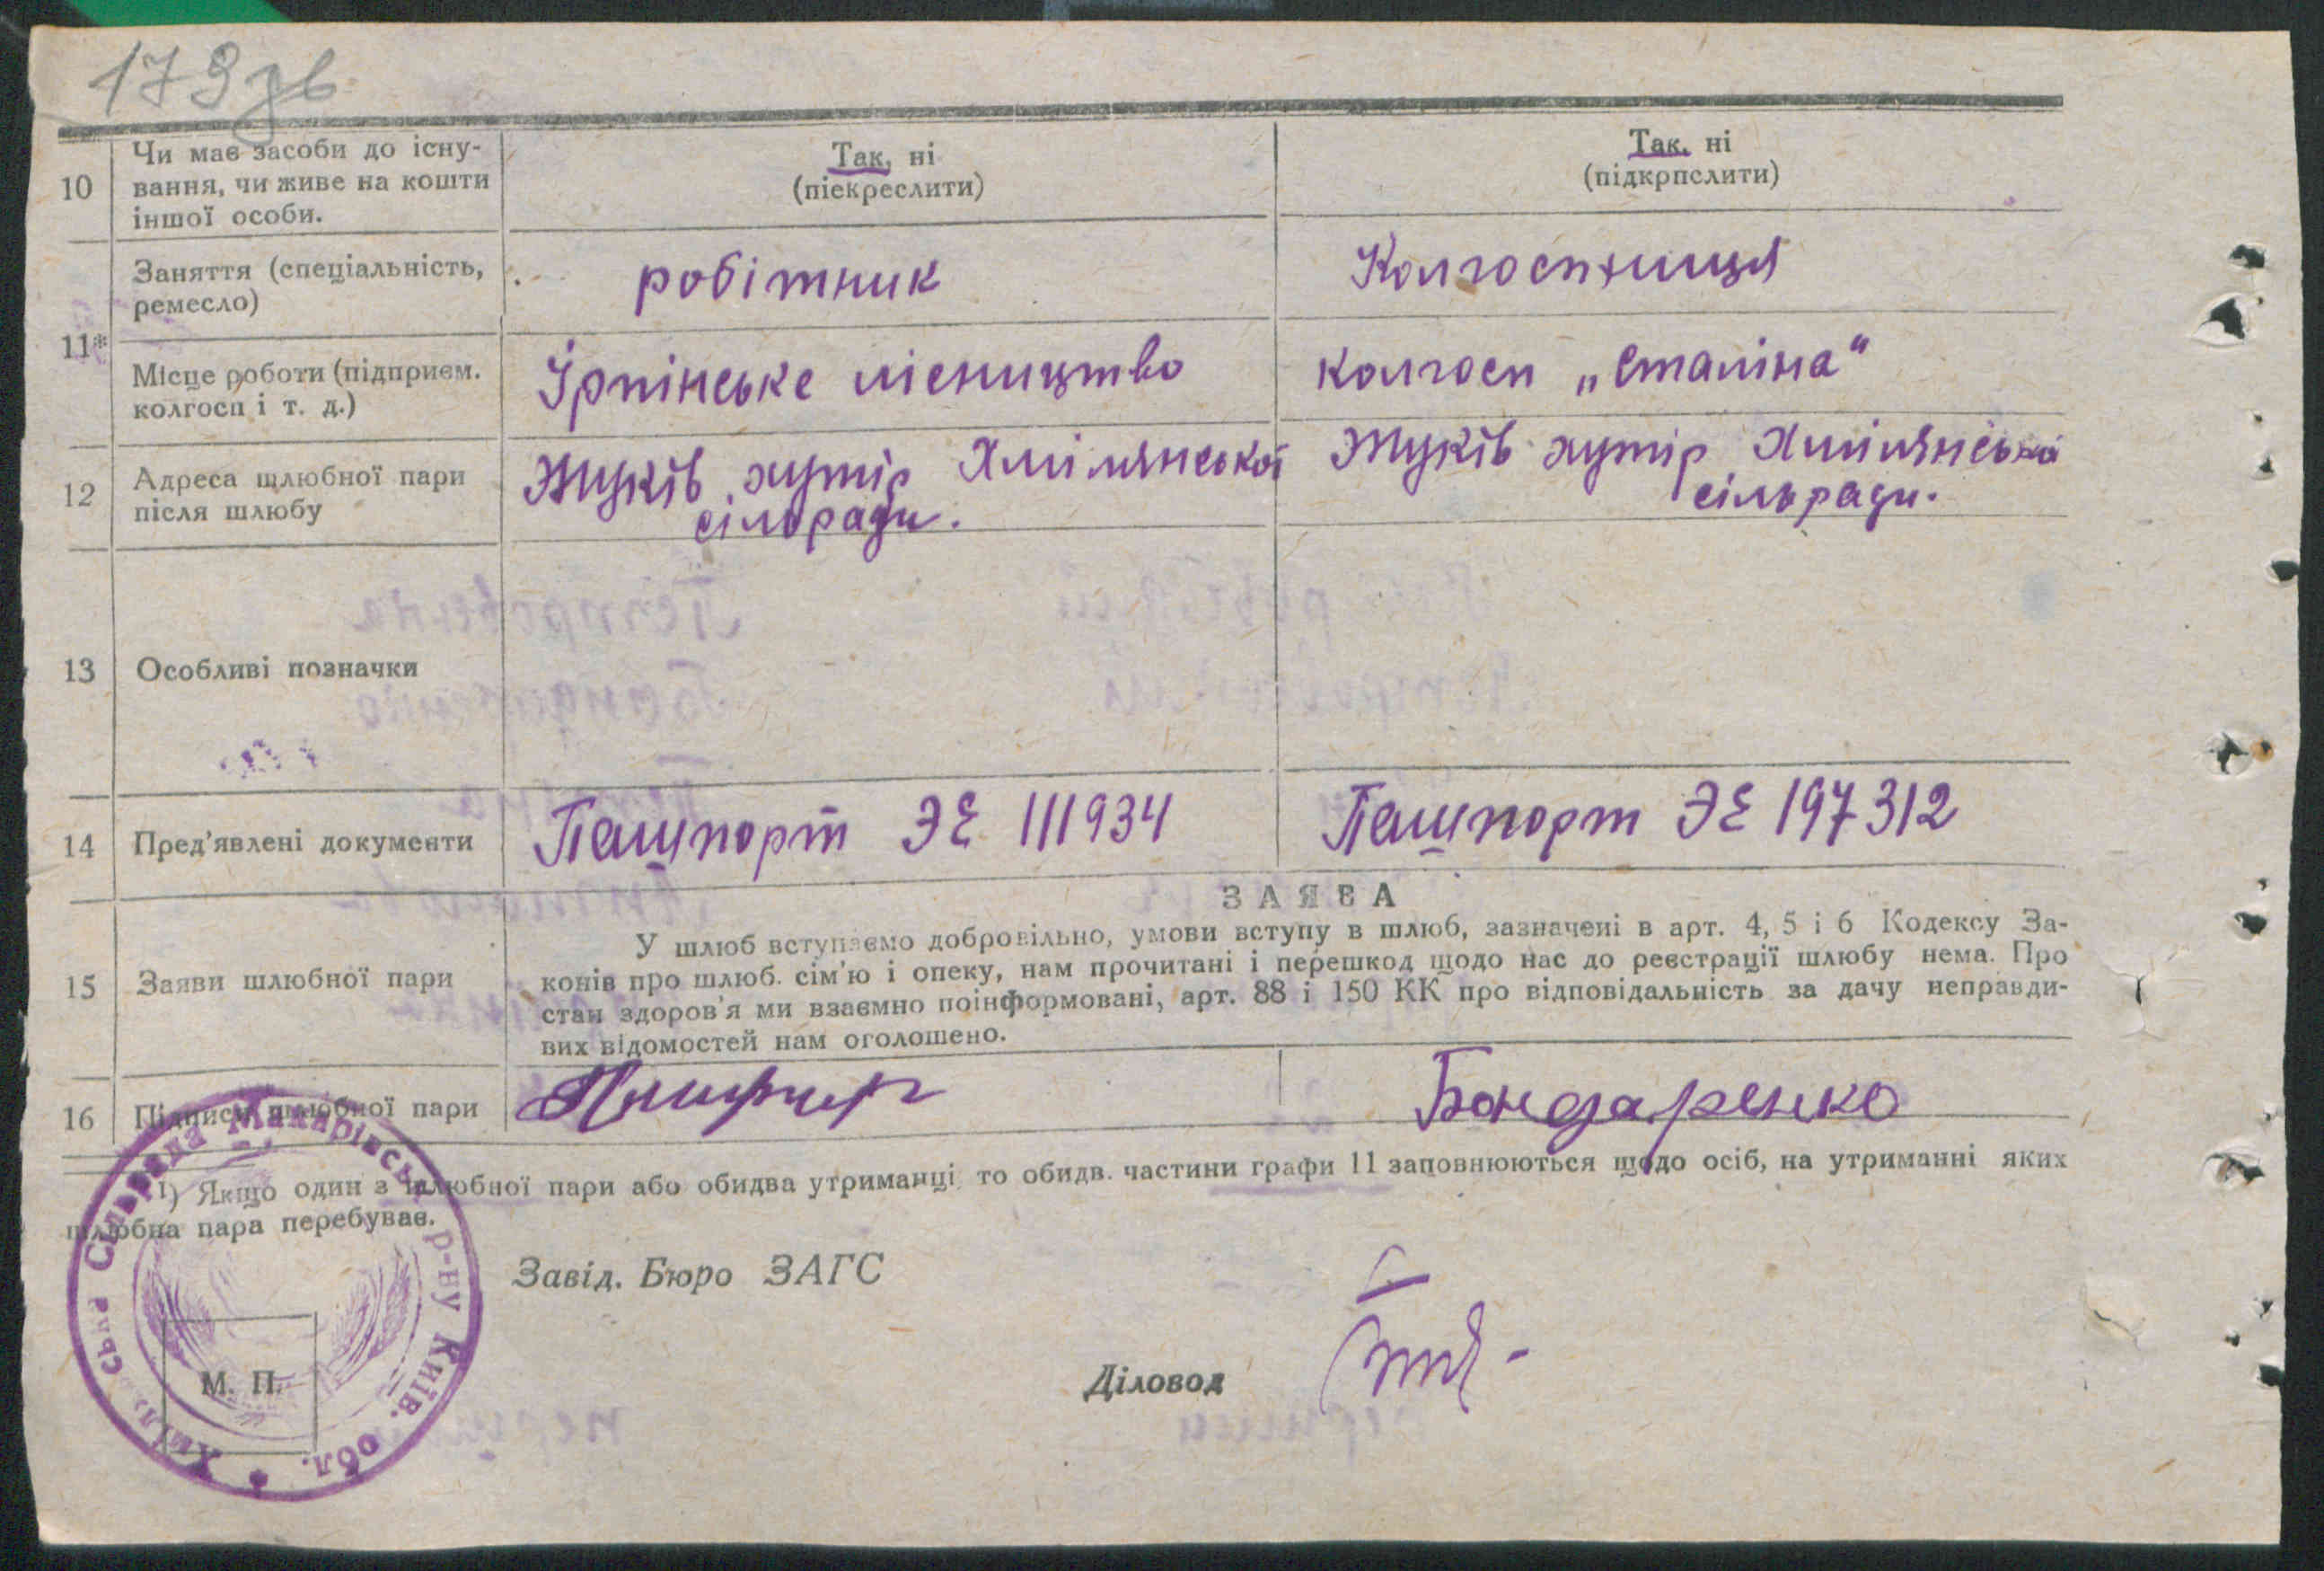 179зв
10 Чи має засоби до існу-
вання, чи живе на кошти
іншої особи.
Так, ні
(піекреслити)
Так, ні
(підкрпслити)
11*
Заняття (спеціальність,
ремесло)
робітник
Колгоспниця
Місце роботи (підприєм.
колгосп і т. д.)
Ірпінське лісництво
колгосп „Сталіна“
12 Адреса шлюбної пари
після шлюбу
Жуків хутір Хмілянської
сільради.
Жуків хутір Хмілянської
сільради.
13 Особливі позначки
14 Пред'явлені документи
Пашпорт ЭЕ 111934
Пашпорт ЭЕ 197312
15 Заяви шлюбної пари
ЗАЯВА
У шлюб вступаємо добровільно, умови вступу в шлюб, зазначені в арт. 4, 5 і 6 Кодексу За-
конів про шлюб. сім'ю і опеку, нам прочитані і перешкод щодо нас до реєстрації шлюбу нема. Про
стан здоров'я ми взаємно поінформовані, арт. 88 і 150 КК про відповідальність за дачу неправди-
вих відомостей нам оголошено.
16 Підписи шлюбної пари
Бондаренко
1) Якщо один з шлюбної пари або обидва утриманці то обидв. частини графи 11 заповнюються щодо осіб, на утриманні яких
шлюбна пара перебуває.
Завід. Бюро ЗАГС
Діловод
М. П.
Сільрада Макарівськ. р-ну Київ. обл.